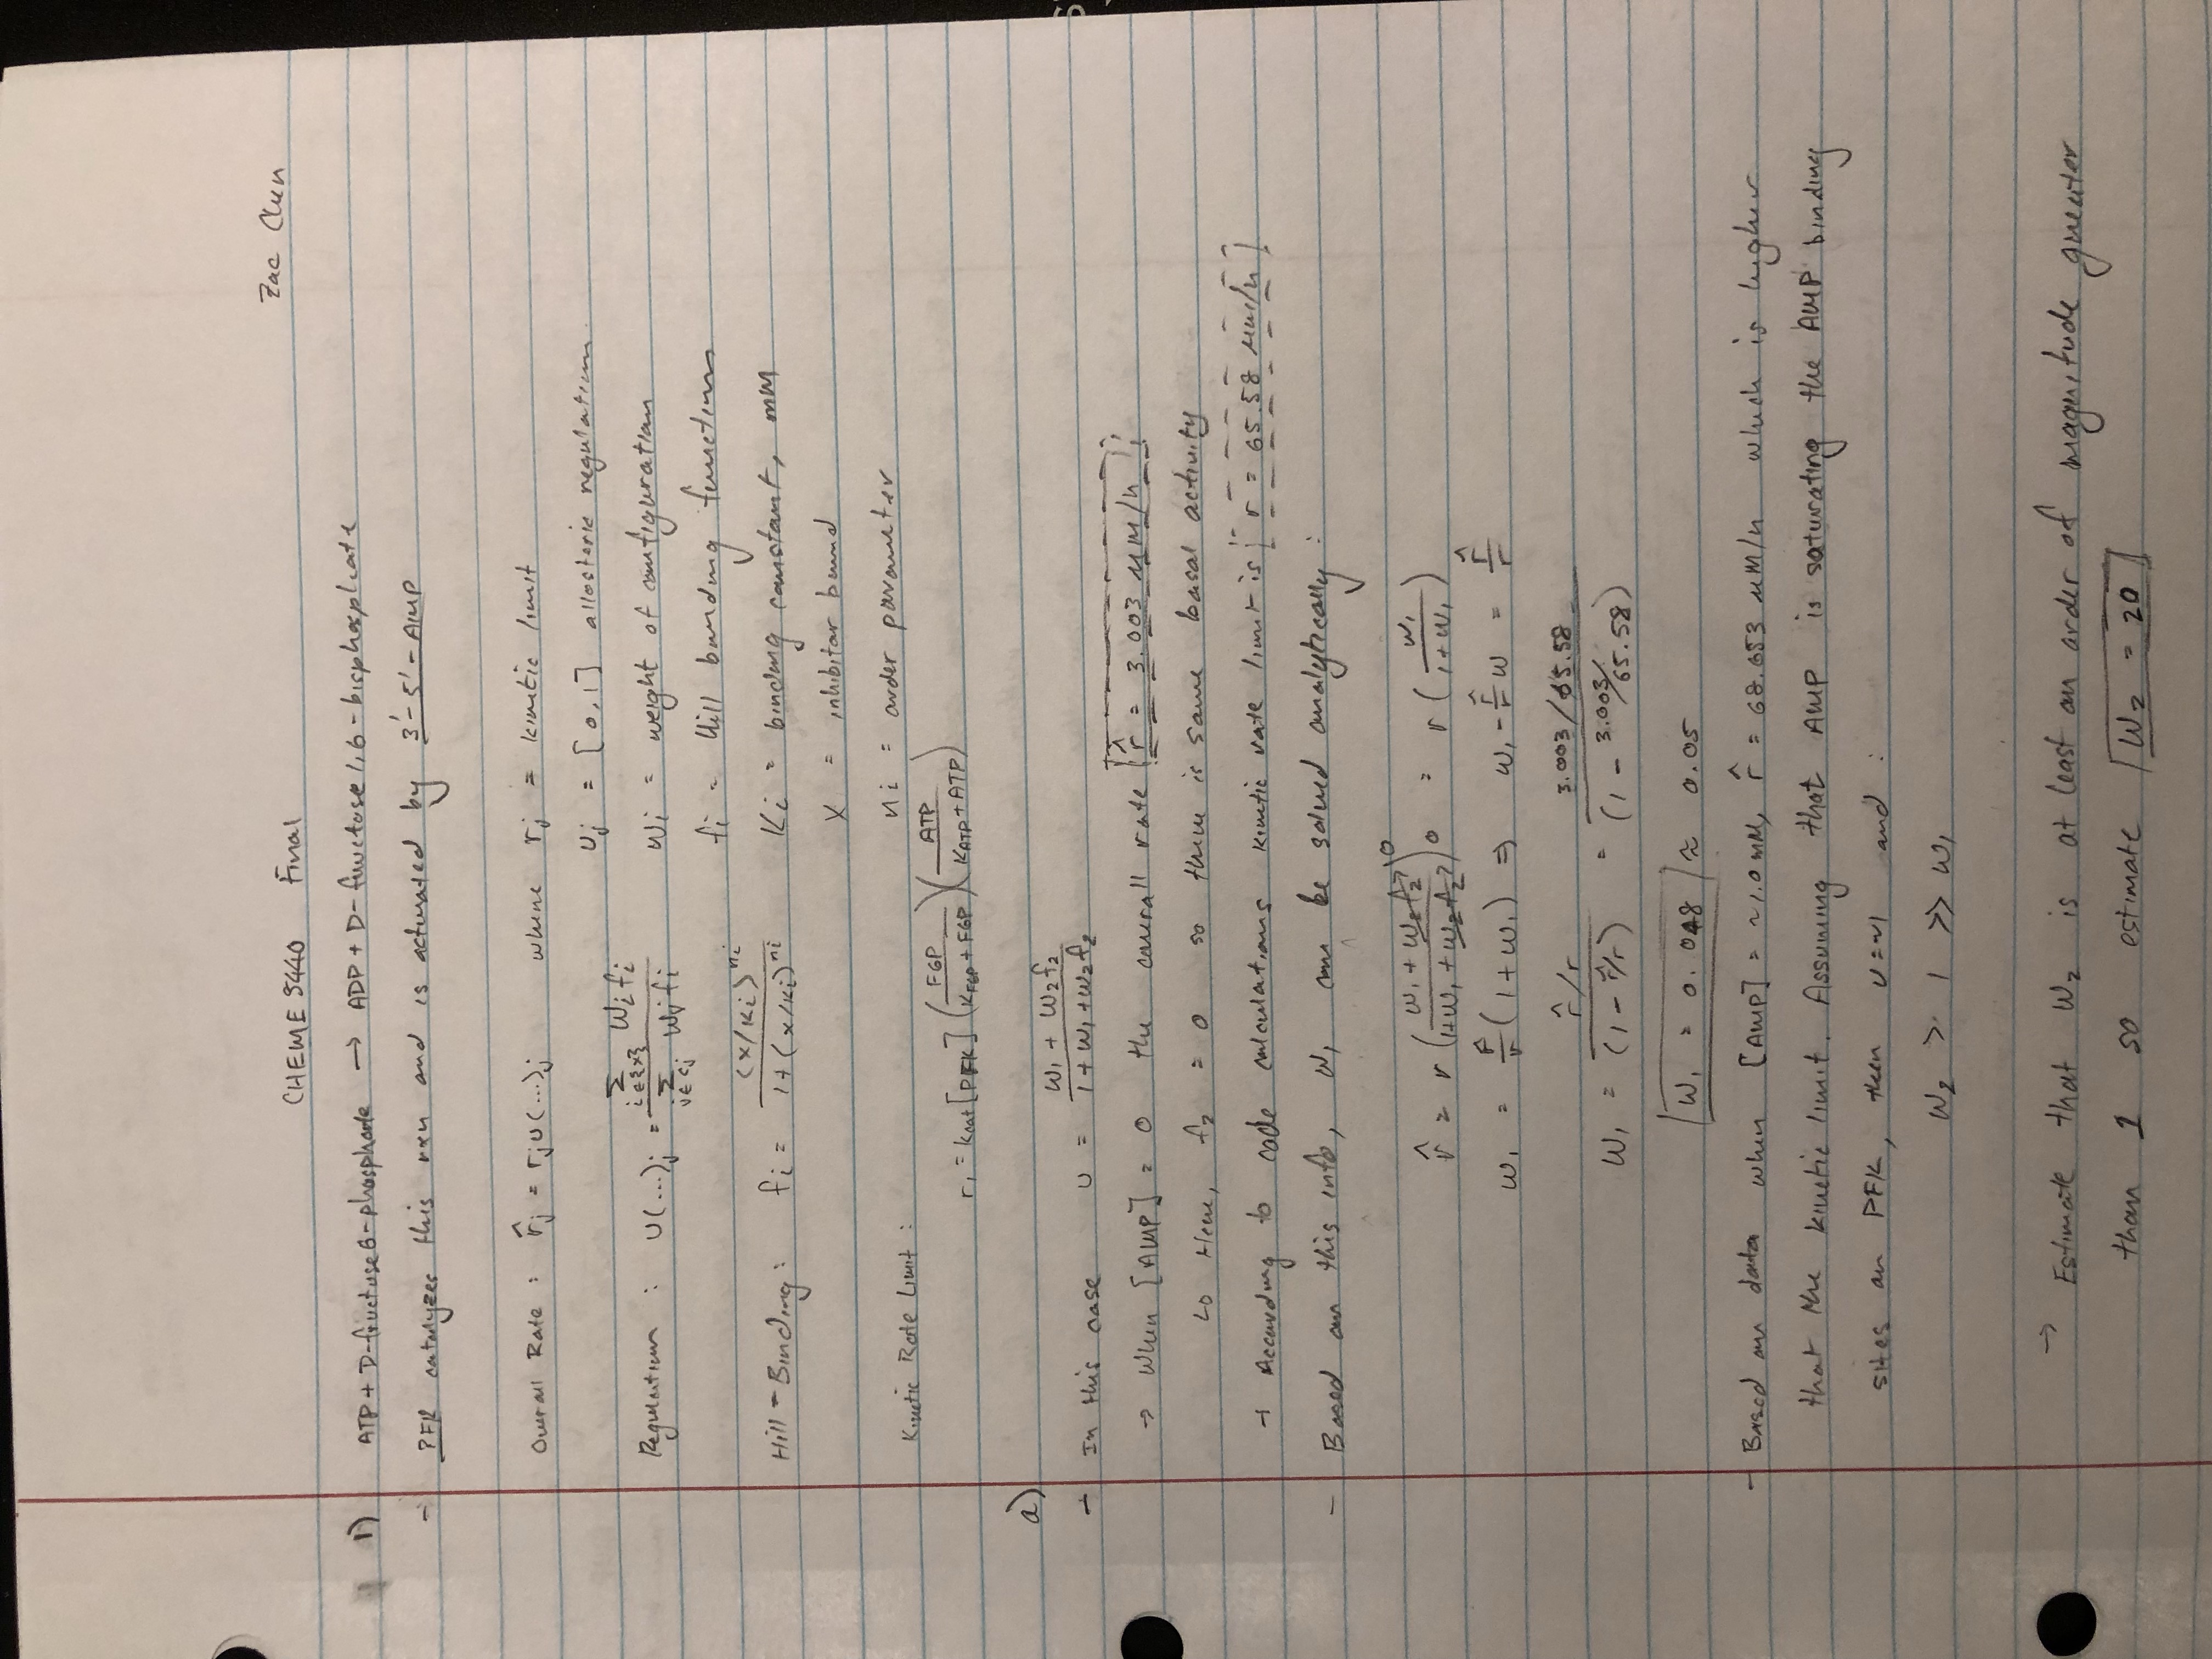 Zac Chen
CHEME 5440 Final
1) ATP + D-fructose 6-phosphate → ADP + D-fructose 1,6-bisphosphate
- PFK catalyzes this rxn and is activated by 3'-5'-AMP
Overall Rate : r̂j = rj u(...)j where rj = kinetic limit
uj = [0,1] allosteric regulation
Regulation : u(...)j = Σ i∈{x} Wi fi / Σ j∈cj Wj fi
Wi = weight of configuration
fi = Hill binding functions
Hill-Binding : fi = (x/Ki)^ni / 1+(x/Ki)^ni
Ki = binding constant, mM
X = inhibitor bound
ni = order parameter
Kinetic Rate Limit :
r1 = kcat [PFK] (F6P / KF6P + F6P)(ATP / KATP + ATP)
a)
- In this case u = W1 + W2f2 / 1 + W1 + W2f2
→ When [AMP] = 0 the overall rate r̂ = 3.003 μM/h
↳ Here, f2 = 0 so there is some basal activity
→ According to code calculations kinetic rate limit is r = 65.58 μM/h
- Based on this info, W1 can be solved analytically :
r̂ = r (W1 + W2f2 / 1+W1 + W2f2) 0 0 = r (W1 / 1+W1)
W1 = r̂/r (1+W1) ⇒ W1 - r̂/r W = r̂/r
W1 = r̂/r / (1 - r̂/r) = 3.003/65.58 / (1 - 3.003/65.58)
W1 = 0.048 ≈ 0.05
- Based on data when [AMP] = ~1.0 mM, r̂ = 68.653 μM/h which is higher
that the kinetic limit. Assuming that AMP is saturating the AMP binding
sites on PFK, then u = ~1 and :
W2 > 1 >> W1
→ Estimate that W2 is at least an order of magnitude greater
than 1 so estimate W2 = 20